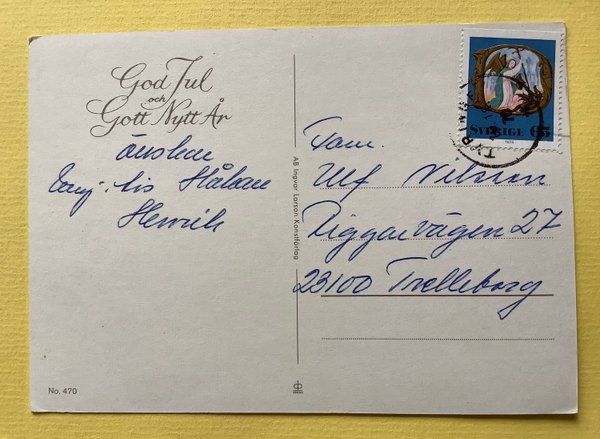 God Jul
och
Gott Nytt År
önskar
Håkan
Henrik
No. 470
AB Ingvar Larson Konstförlag
SVERIGE 65
Fam.
Ulf Nilsson
Riggarvägen 27
23100 Trelleborg